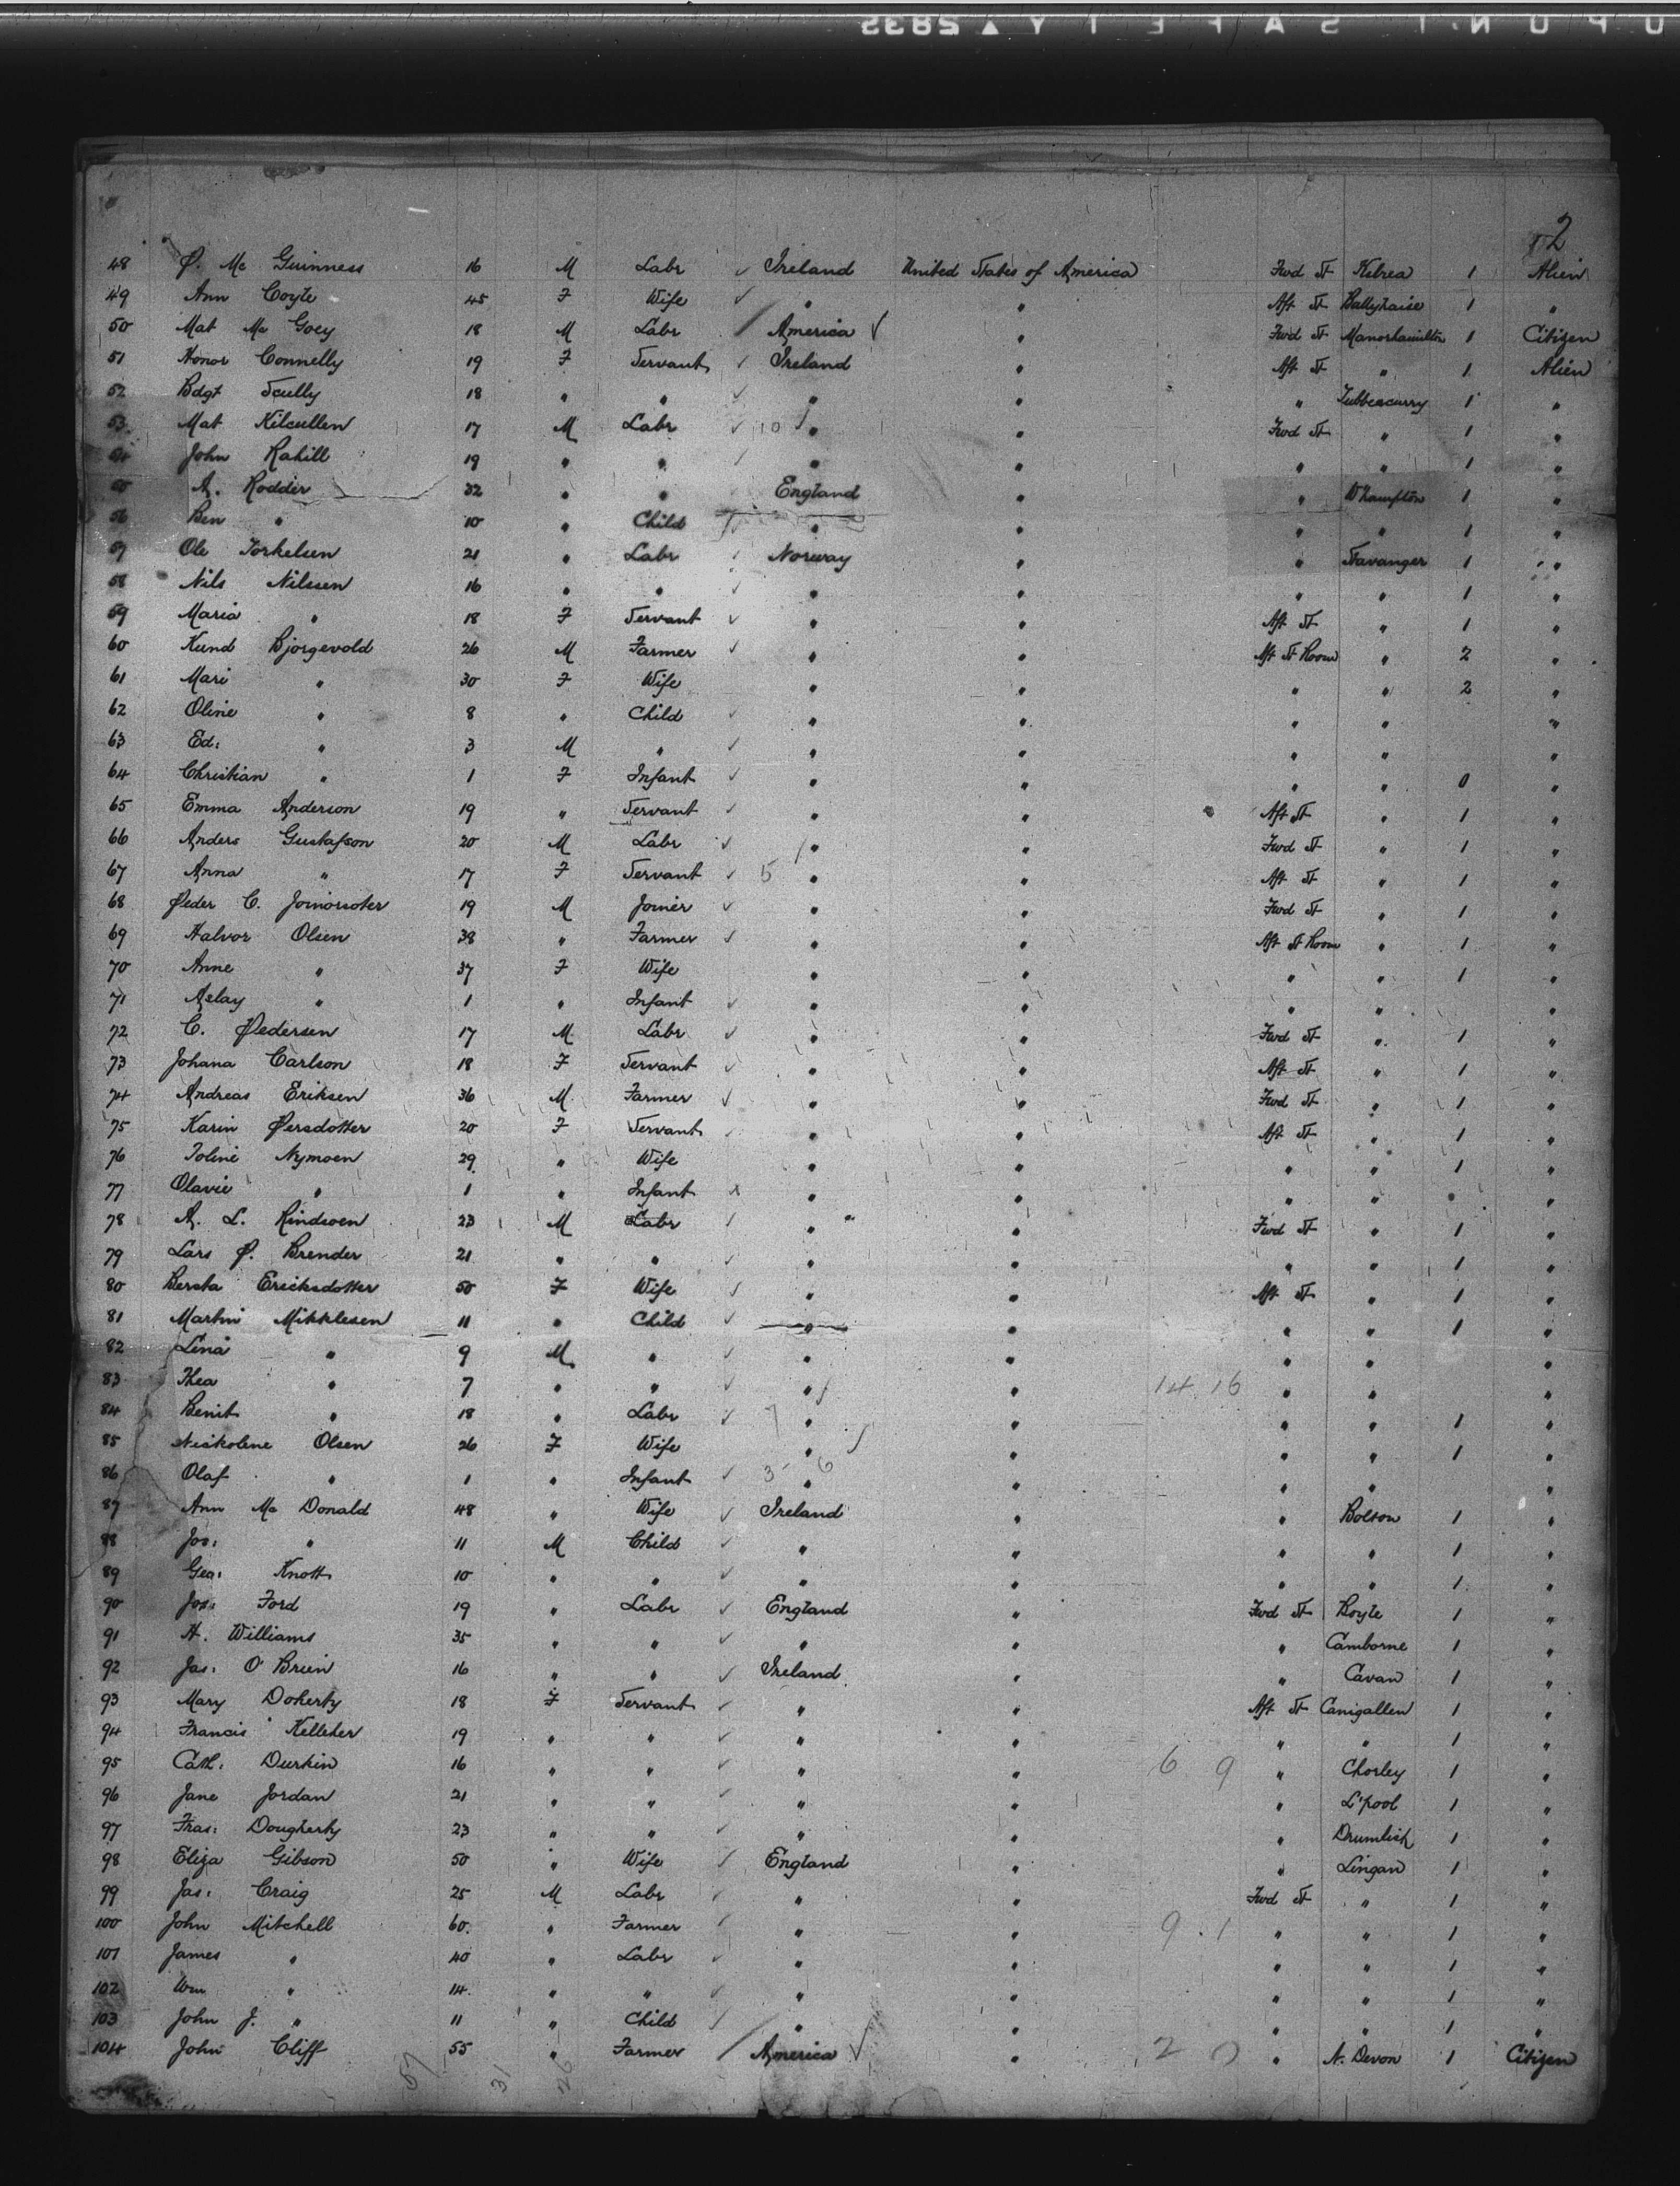 2
48 P. Mc Guinness 16 M Labr Ireland United States of America Fwd St Kelrea 1 Alien
49 Ann Coyle 45 F Wife " " Aft St Ballyhaise 1 "
50 Mat Mc Goey 18 M Labr America " Fwd St Manorhamilton 1 Citizen
51 Honor Connelly 19 F Servant Ireland " Aft St " 1 Alien
52 Bdgt Scully 18 " " " " " Tubbercurry 1 "
53 Mat Kilcullen 17 M Labr 10 " " Fwd St " 1 "
54 John Rahill 19 " " " " " " 1 "
55 A. Rodder 32 " " England " " W'hampton 1 "
56 Ben " 10 " Child " " " " 1 "
57 Ole Torkelsen 21 " Labr Norway " " Stavanger 1 "
58 Nils Nilssen 16 " " " " " " 1 "
59 Maria " 18 F Servant " " Aft St " 1 "
60 Kund Bjorgevold 26 M Farmer " " Aft St Room " 2 "
61 Mari " 30 F Wife " " " " 2 "
62 Oline " 8 " Child " " " " "
63 Ed: " 3 M " " " " " "
64 Christian " 1 F Infant " " " " 0 "
65 Emma Anderson 19 " Servant " " Aft St " 1 "
66 Anders Gustafson 20 M Labr " " Fwd St " 1 "
67 Anna " 17 F Servant 5 " " Aft St " 1 "
68 Peder C. 19 M Joiner " " Fwd St " 1 "
69 Halvor Olsen 38 " Farmer " " Aft St Room " 1 "
70 Anne " 37 F Wife " " " " 1 "
71 Aslay " 1 " Infant " " " " "
72 C. Pedersen 17 M Labr " " Fwd St " 1 "
73 Johana Carlson 18 F Servant " " Aft St " 1 "
74 Andreas Eriksen 36 M Farmer " " Fwd St " 1 "
75 Karin Persdotter 20 F Servant " " Aft St " 1 "
76 Toline Nymoen 29 " Wife " " " " 1 "
77 Olavie " 1 " Infant " " " " "
78 A. L. Rindsoen 23 M Labr " " Fwd St " 1 "
79 Lars P. Brender 21 " " " " " " 1 "
80 Bersta Ericksdotter 50 F Wife " " Aft St " 1 "
81 Martin Mikklesen 11 " Child " " " " 1 "
82 Lina " 9 M " " " " " "
83 Thea " 7 " " " " 14 16 " " "
84 Benit " 18 " Labr 7 " " " " 1 "
85 Niskolene Olsen 26 F Wife " " " " 1 "
86 Olaf " 1 " Infant 3 6 " " " " "
87 Ann Mc Donald 48 " Wife Ireland " " Bolton 1 "
88 Jos: " 11 M Child " " " " 1 "
89 Geo: Knott 10 " " " " " " 1 "
90 Jos: Ford 19 " Labr England " Fwd St Boyle 1 "
91 H. Williams 35 " " " " " Camborne 1 "
92 Jas: O'Brien 16 " " Ireland " " Cavan 1 "
93 Mary Doherty 18 F Servant " " Aft St Carrigallen 1 "
94 Francis Kelleher 19 " " " " " " 1 "
95 Cath: Durkin 16 " " " " 6 9 " Chorley 1 "
96 Jane Jordan 21 " " " " " L'pool 1 "
97 Fras: Dougherty 23 " " " " " Drumlish 1 "
98 Eliza Gibson 50 " Wife England " " Lingan 1 "
99 Jas: Craig 25 M Labr " " Fwd St " 1 "
100 John Mitchell 60 " Farmer " " 9 1 " " 1 "
101 James " 40 " Labr " " " " 1 "
102 Wm " 14 " " " " " " 1 "
103 John J. " 11 " Child " " " " 1 "
104 John Cliff 55 " Farmer America " 2 0 " N. Devon 1 Citizen
57 31 26